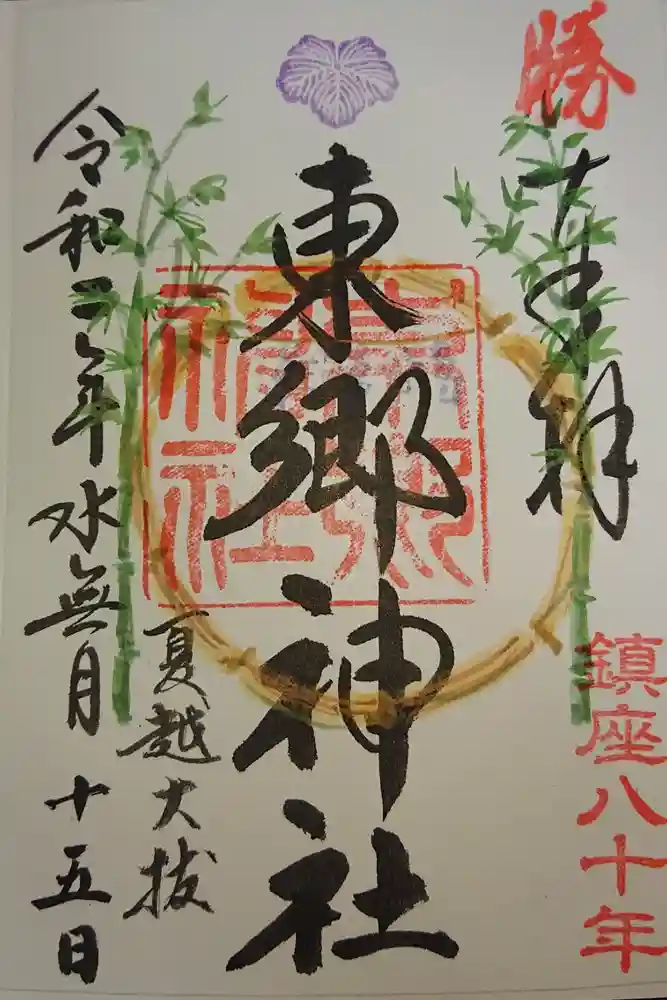 勝
奉拝
鎮座八十年
東郷神社
夏越大祓
令和二年水無月十五日